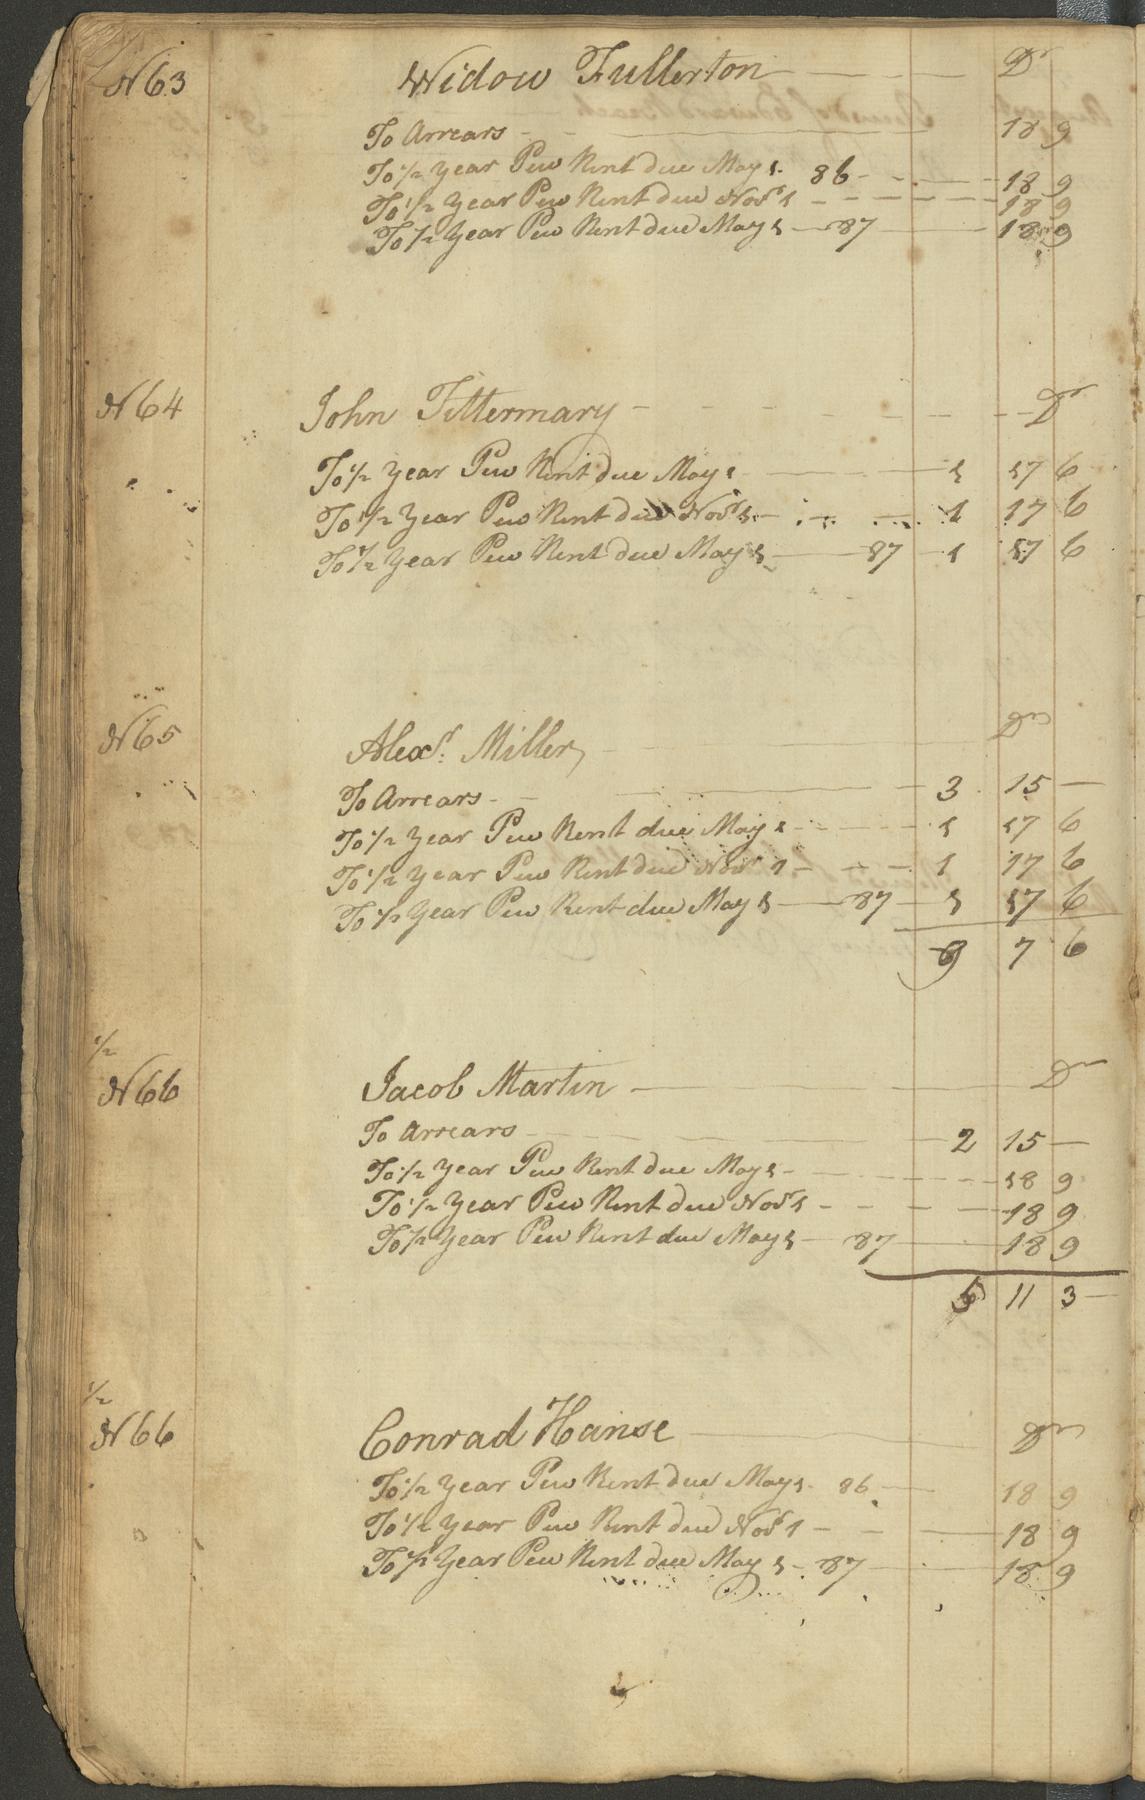 N 63 Widow Fullerton Dr
To Arrears 18 9
To 1/2 Year Pew Rent due May 1. 86 18 9
To 1/2 Year Pew Rent due Novr 1 18 9
To 1/2 Year Pew Rent due May 1 87 18 9
N 64 John Tittermary Dr
To 1/2 Year Pew Rent due May 1 1 17 6
To 1/2 Year Pew Rent due Novr 1. 1 17 6
To 1/2 Year Pew Rent due May 1 87 1 17 6
N 65 Alexr. Miller Dr
To Arrears 3 15 —
To 1/2 Year Pew Rent due May 1 1 17 6
To 1/2 Year Pew Rent due Novr 1 1 17 6
To 1/2 Year Pew Rent due May 1 87 1 17 6
9 7 6
1/2
N 66 Jacob Martin Dr
To Arrears 2 15 —
To 1/2 Year Pew Rent due May 1 18 9
To 1/2 Year Pew Rent due Novr 1 18 9
To 1/2 Year Pew Rent due May 1 87 18 9
5 11 3
1/2
N 66 Conrad Hanse Dr
To 1/2 Year Pew Rent due May 1. 86 18 9
To 1/2 Year Pew Rent due Novr 1 18 9
To 1/2 Year Pew Rent due May 1 87 18 9